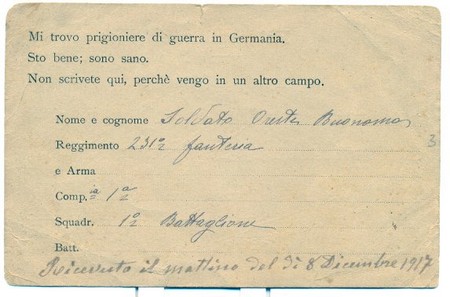 Mi trovo prigioniere di guerra in Germania.
Sto bene; sono sano.
Non scrivete qui, perchè vengo in un altro campo.
Nome e cognome Soldato Oreste Buonomo
Reggimento 231º fanteria
e Arma
Comp.ia 1ª
Squadr. 1º Battaglione
Batt.
Ricevuto il mattino del dì 8 Dicembre 1917